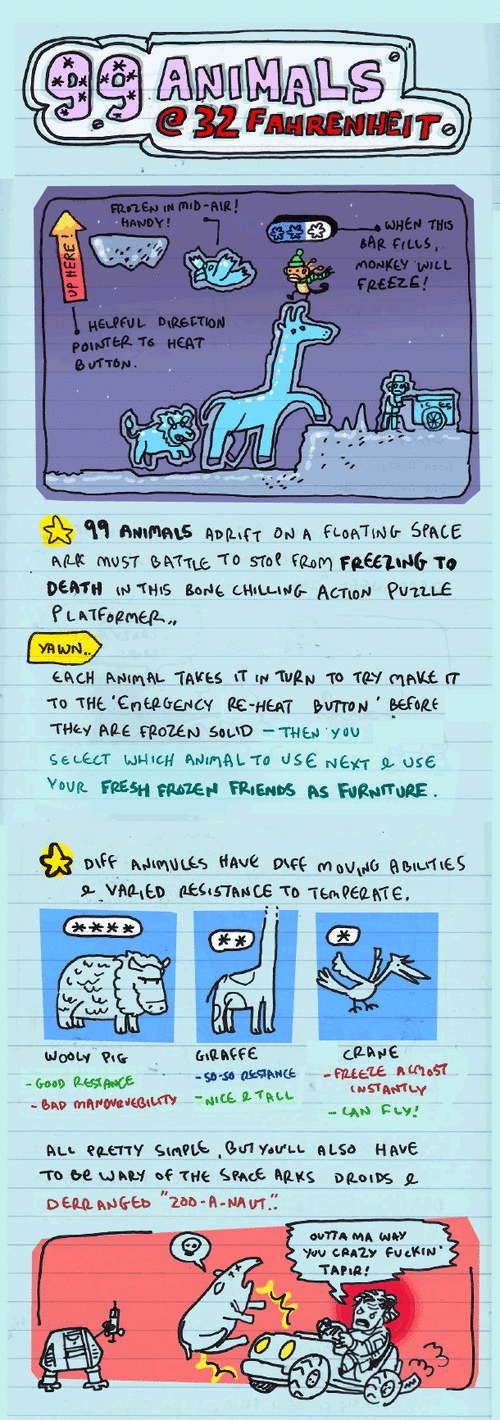 99 ANIMALS
@ 32 FAHRENHEIT
FROZEN IN MID-AIR!
HANDY!
UP HERE!
WHEN THIS
BAR FILLS,
MONKEY WILL
FREEZE!
HELPFUL DIRECTION
POINTER TO HEAT
BUTTON.
99 ANIMALS ADRIFT ON A FLOATING SPACE
ARK MUST BATTLE TO STOP FROM FREEZING TO
DEATH IN THIS BONE CHILLING ACTION PUZZLE
PLATFORMER,,
YAWN..
EACH ANIMAL TAKES IT IN TURN TO TRY MAKE IT
TO THE 'EMERGENCY RE-HEAT BUTTON' BEFORE
THEY ARE FROZEN SOLID - THEN YOU
SELECT WHICH ANIMAL TO USE NEXT & USE
YOUR FRESH FROZEN FRIENDS AS FURNITURE.
DIFF ANIMULES HAVE DIFF MOVING ABILITIES
& VARIED RESISTANCE TO TEMPERATE.
****
**
*
WOOLY PIG
- GOOD RESTANCE
- BAD MANOUVNEBILITY
GIRAFFE
- SO-SO RESISTANCE
- NICE & TALL
CRANE
- FREEZE ALMOST
INSTANTLY
- CAN FLY!
ALL PRETTY SIMPLE, BUT YOU'LL ALSO HAVE
TO BE WARY OF THE SPACE ARKS DROIDS &
DERRANGED "ZOO-A-NAUT".
OUTTA MA WAY
YOU CRAZY FUCKIN'
TAPIR!